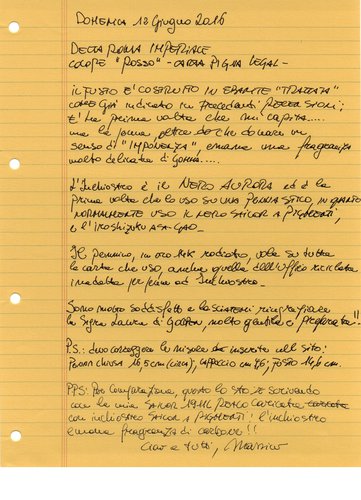 DOMENICA 12 Giugno 2016
DELTA ROMA IMPERIALE
COLORE "ROSSO" - CARTA PIGNA LEGAL -
IL FUSTO E' COSTRUITO IN EBANITE "TRATTATA"
COME già indicato in precedenti RECENSIONI;
E' la prima volta che mi capita.....
ma la penna, oltre a donare un
senso di "IMPONENZA", emana una fragranza
molto delicata di GOMMA.....
L'inchiostro è il NERO AURORA ed è la
prima volta che lo uso su una PENNA STILO, in quanto
NORMALMENTE USO IL NERO SAILOR A PIGMENTI,
e l'IROSHIZUKU ASA-GAO.
Il pennino, in oro 14K rodiato, vola su tutta
la carta che uso, anche quella dell'ufficio riciclata
inadatta perfino ad inchiostro.
Sono molto soddisfatto e lasciatemi ringraziare
la sig.ra Laura di molto gentile e preparata!!
P.S.: devo correggere le misure inserite nel sito:
PENNA CHIUSA 16,5 cm (circa), CAPPUCCIO cm 7,5; FUSTO 14,6 cm.
PPS: Per comparazione, questo lo sto scrivendo
con la mia SAILOR 1911L caricata
con inchiostro SAILOR A PIGMENTI: l'inchiostro
emana fragranza di carbone!!
Ciao a tutti, Massimo